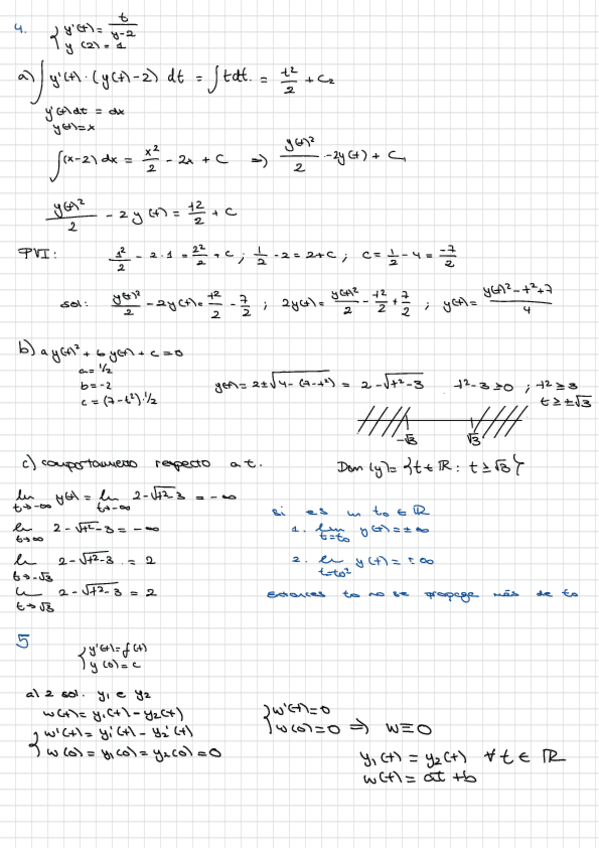 4. { y'(t) = t/(y-2)
y(2) = 1
a) ∫ y'(t)·(y(t)-2) dt = ∫ t dt = t²/2 + C₂
y'(t) dt = dx
y(t) = x
∫(x-2) dx = x²/2 - 2x + C ⇒ y(t)²/2 - 2y(t) + C₁
y(t)²/2 - 2y(t) = t²/2 + C
PVI: 1²/2 - 2·1 = 2²/2 + c ; 1/2 - 2 = 2 + c ; c = 1/2 - 4 = -7/2
sol: y(t)²/2 - 2y(t) = t²/2 - 7/2 ; 2y(t) = y(t)²/2 - t²/2 + 7/2 ; y(t) = (y(t)² - t² + 7)/4
b) a y(t)² + b y(t) + c = 0
a = 1/2
b = -2
c = (7-t²)·1/2
y(t) = 2 ± √(4-(7-t²)) = 2 - √(t²-3) t²-3 ≥ 0 ; t² ≥ 3
t ≥ ±√3
-√3 √3
c) comportamiento respecto a t. Dom(y) = {t ∈ ℝ : t ≥ √3}
lim t→-∞ y(t) = lim t→-∞ 2-√(t²-3) = -∞
lim t→∞ 2-√(t²-3) = -∞
lim t→-√3 2-√(t²-3) = 2
lim t→√3 2-√(t²-3) = 2
si es un t₀ ∈ ℝ
1. lim t=t₀ y(t) = ±∞
2. lim y(t) = ±∞
entonces t₀ no se propaga más de t₀
5
{ y'(t) = f(t)
y(0) = c
a) 2 sol. y₁ e y₂
w(t) = y₁(t) - y₂(t)
{ w'(t) = y₁'(t) - y₂'(t)
w(0) = y₁(0) = y₂(0) = 0
{ w'(t) = 0
w(0) = 0 ⇒ w ≡ 0
y₁(t) = y₂(t) ∀ t ∈ ℝ
w(t) = at + b